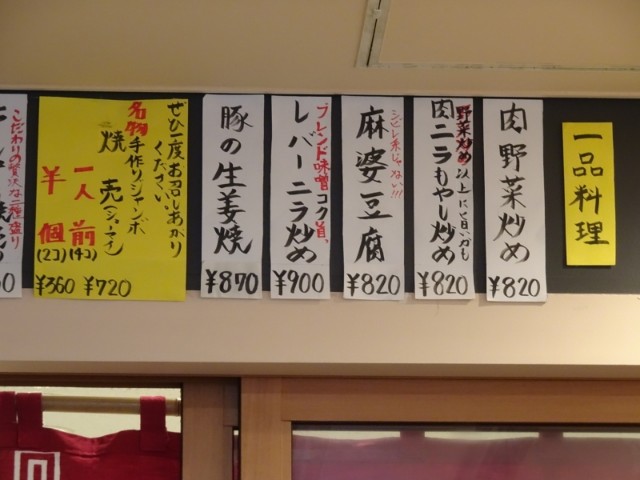 一品料理
肉野菜炒め
¥820
野菜炒め以上に旨いかも
肉ニラもやし炒め
¥820
シビレ系じゃない!!!
麻婆豆腐
¥820
ブレンド味噌コク旨、
レバーニラ炒め
¥900
豚の生姜焼
¥870
ぜひ一度お召しあがり
ください。
名物手作りジャンボ
焼売(シューマイ)
一人前(4コ)
¥720
半個(2コ)
¥360
こだわりの贅沢な二種盛り